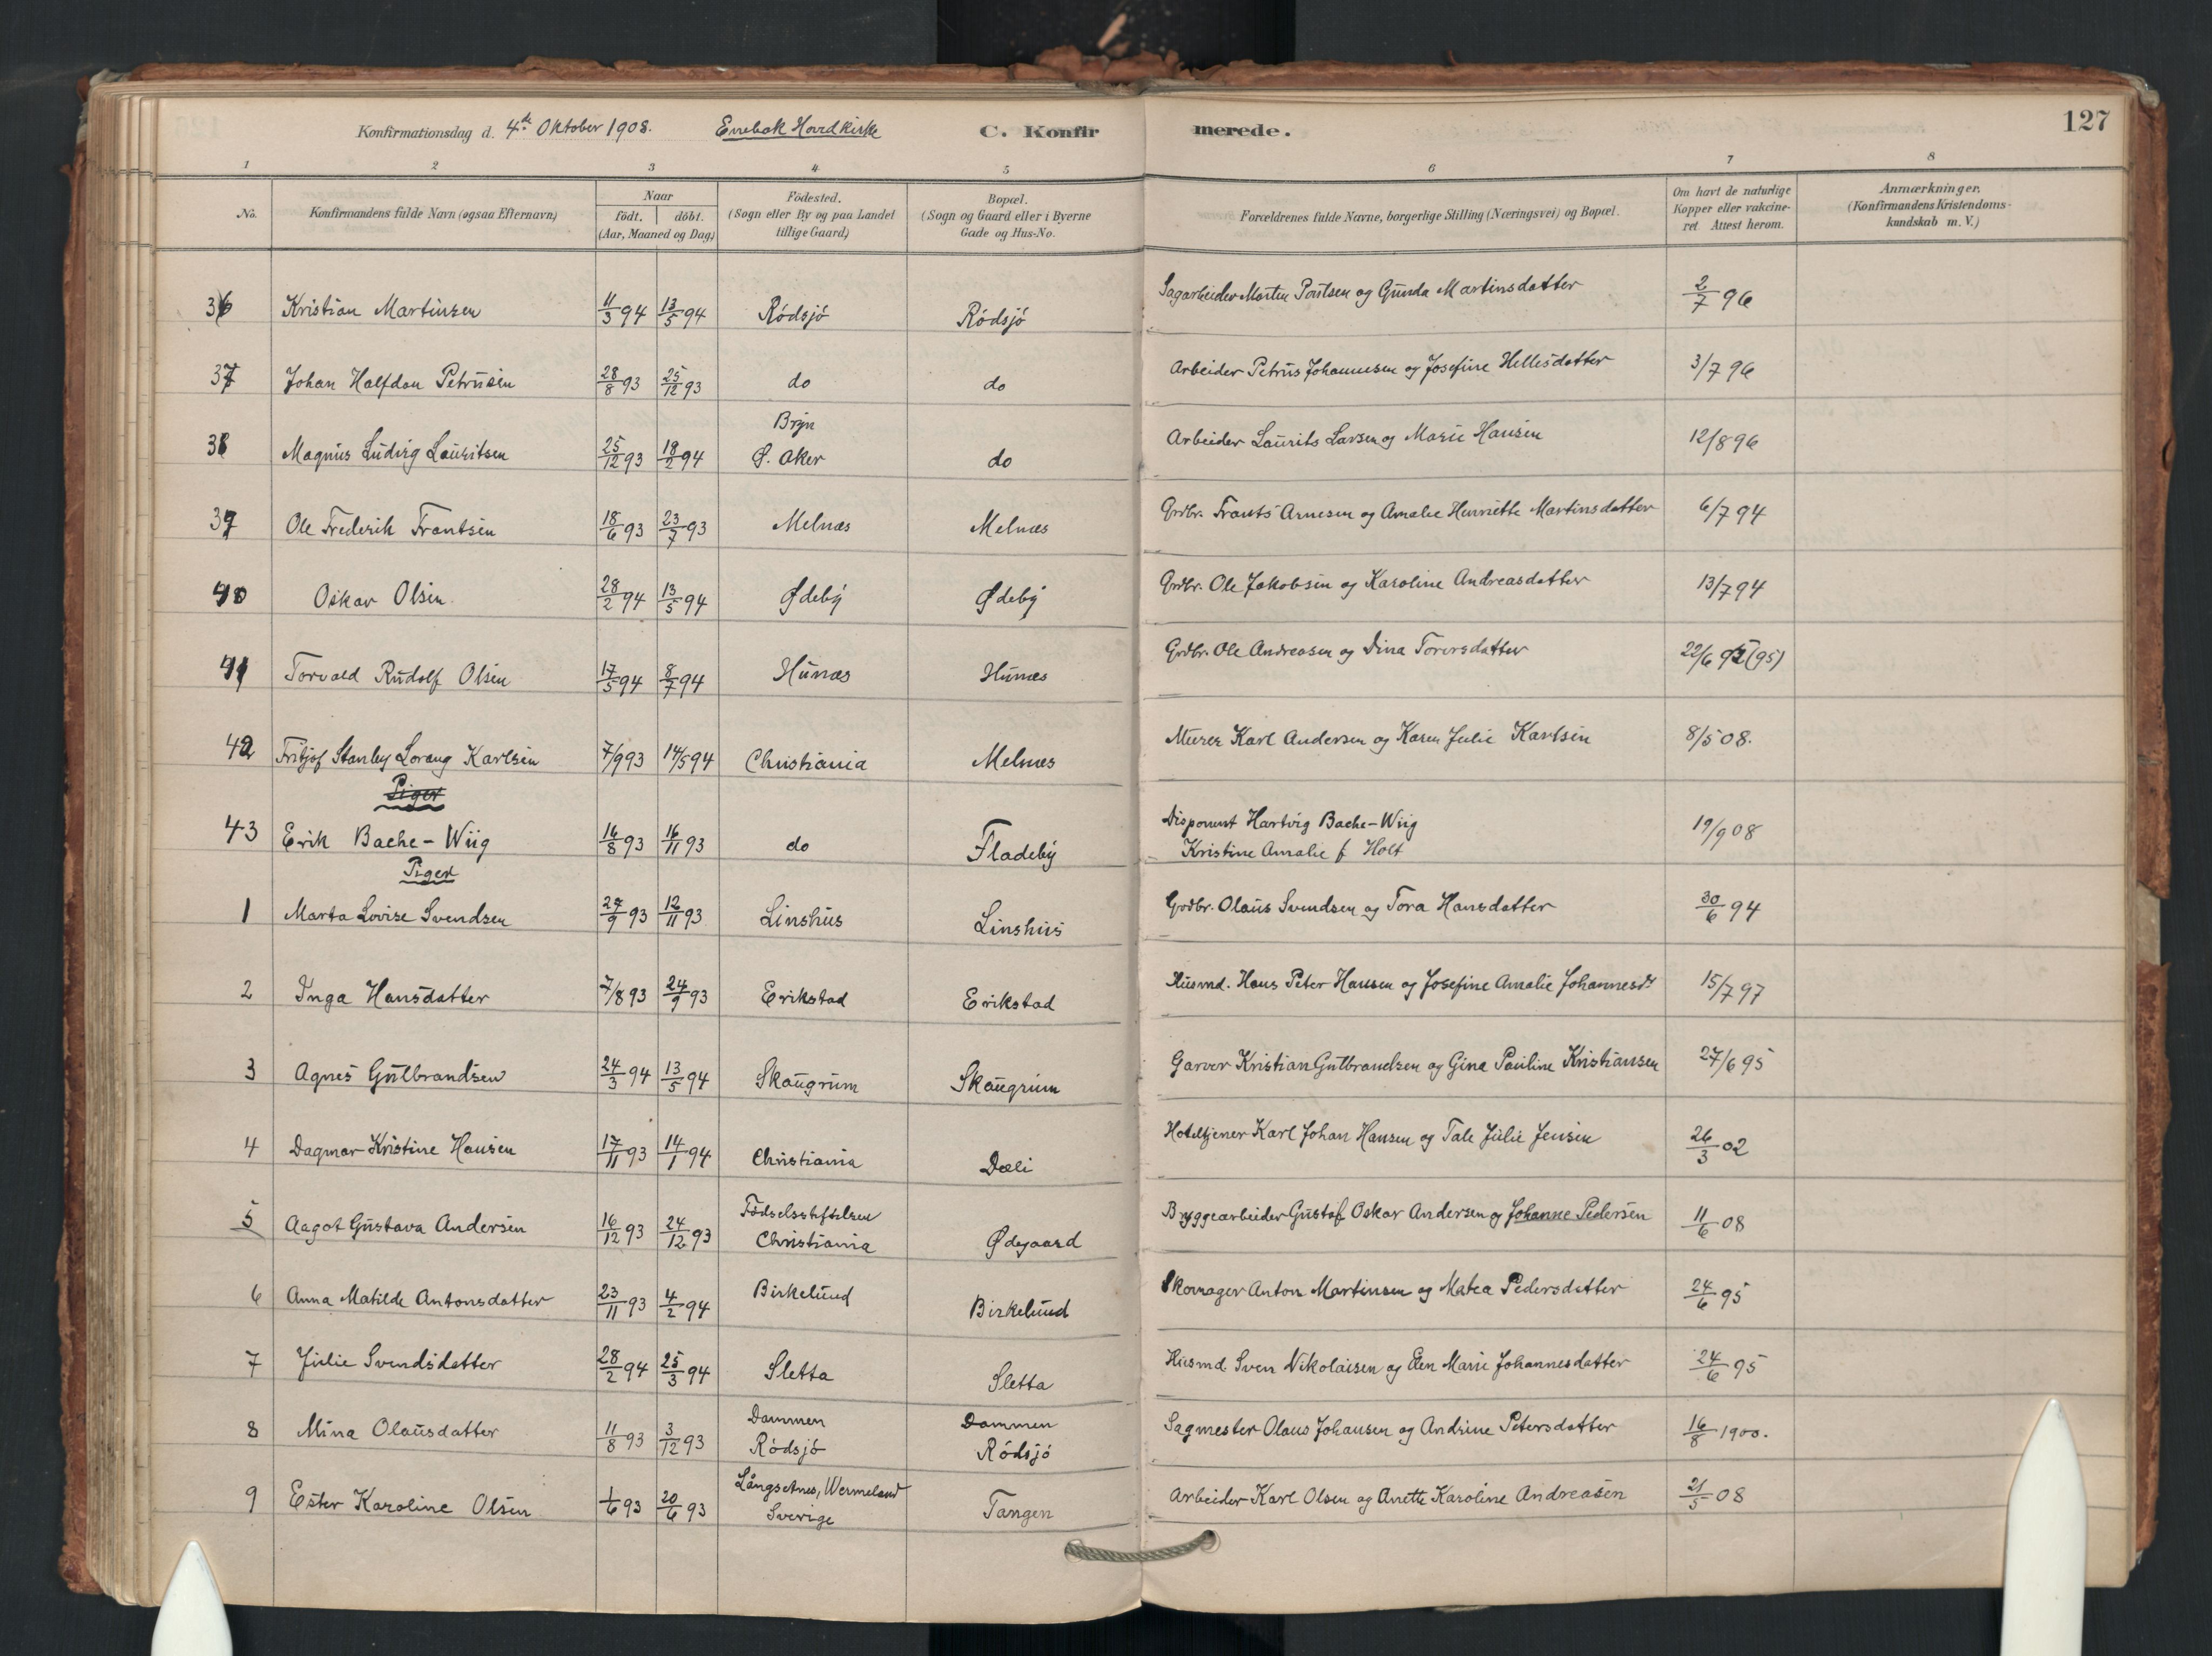 127
Konfirmationsdag d. 4de Oktober 1908. Enebak Hovdkirke C. Konfirmerede.
1 2 3 4 5 6 7 8
No.
Konfirmandens fulde Navn (ogsaa Efternavn)
Naar
födt. döbt.
(Aar, Maaned og Dag.)
Födested.
(Sogn eller By og paa Landet
tillige Gaard.)
Bopæl.
(Sogn og Gaard eller i Byerne
Gade og Hus-No.
Forældrenes fulde Navne, borgerlige Stilling (Næringsvei) og Bopæl.
Om havt de naturlige
Kopper eller vakcine-
ret. Attest herom.
Anmærkninger.
(Konfirmandens Kristendoms-
kundskab m. V.)
36 Kristian Martinsen 11/3 94 13/5 94 Rödsjö Rödsjö Sagarbeider Martin Poulsen og Gunda Martinsdatter 2/7 96
37 Johan Halfdan Petrusen 28/8 93 25/12 93 do do Arbeider Petrus Johannesen og Josefine Hellesdatter 3/7 96
38 Magnus Ludvig Lauritsen 25/12 93 18/2 94 Bryn
Ö. Aker do Arbeider Laurits Larsen og Marie Hansen 12/8 96
39 Ole Frederik Frantsen 18/6 93 23/7 93 Melnæs Melnæs Grdbr. Frants Arnesen og Amalie Henriette Martinsdatter 6/7 94
40 Oskar Olsen 28/2 94 13/5 94 Ødeby Ødeby Grdbr. Ole Jakobsen og Karoline Andreasdatter 13/7 94
41 Torvald Rudolf Olsen 17/5 94 8/7 94 Hunæs Hunæs Grdbr. Ole Andreasen og Dina Torersdatter 22/6 95 (95)
42 Fritjof Stanley Lorang Karlsen 7/9 93 14/5 94 Christiania Melnæs Murer Karl Andersen og Karen Julie Karlsen 8/5 08.
Piger
43 Erik Bache-Wiig 16/8 93 16/11 93 do Fladeby Disponent Hartvig Bache-Wiig
Kristine Amalie f. Holt 19/9 08
Piger
1 Marta Lovise Svendsen 27/9 93 12/11 93 Linshus Linshus Grdbr. Olaus Svendsen og Tora Hansdatter 30/6 94
2 Inga Hansdatter 7/8 93 24/9 93 Erikstad Erikstad Husmd. Hans Peter Hansen og Josefine Amalie Johannesdr 15/7 97
3 Agnes Gulbrandsen 24/3 94 13/5 94 Skaugrum Skaugrum Garver Kristian Gulbrandsen og Gina Pauline Kristiansen 27/6 95
4 Dagmar Kristine Hansen 17/11 93 14/1 94 Christiania Dæli Hoteltjener Karl Johan Hansen og Tale Julie Jensen 26/3 02
5 Aagot Gustava Andersen 16/12 93 24/12 93 Födselsstiftelsen
Christiania Ødegaard Bryggearbeider Gustaf Oskar Andersen og Johanne Pedersen 11/6 08
6 Anna Matilde Antonsdatter 23/11 93 4/2 94 Birkelund Birkelund Skomager Anton Martinsen og Matea Pedersdatter 24/6 95
7 Julie Svendsdatter 28/2 94 25/3 94 Sletta Sletta Husmd. Sven Nikolaisen og Elen Marie Johannesdatter 24/6 95
8 Mina Olausdatter 11/8 93 3/12 93 Dammen
Rödsjö Dammen
Rödsjö Sagmester Olaus Johansen og Andrine Petersdatter 16/8 1900.
9 Ester Karoline Olsen 1/6 93 20/6 93 Långsetnes, Wermeland
Sverige Tangen Arbeider Karl Olsen og Anette Karoline Andreasen 21/5 08